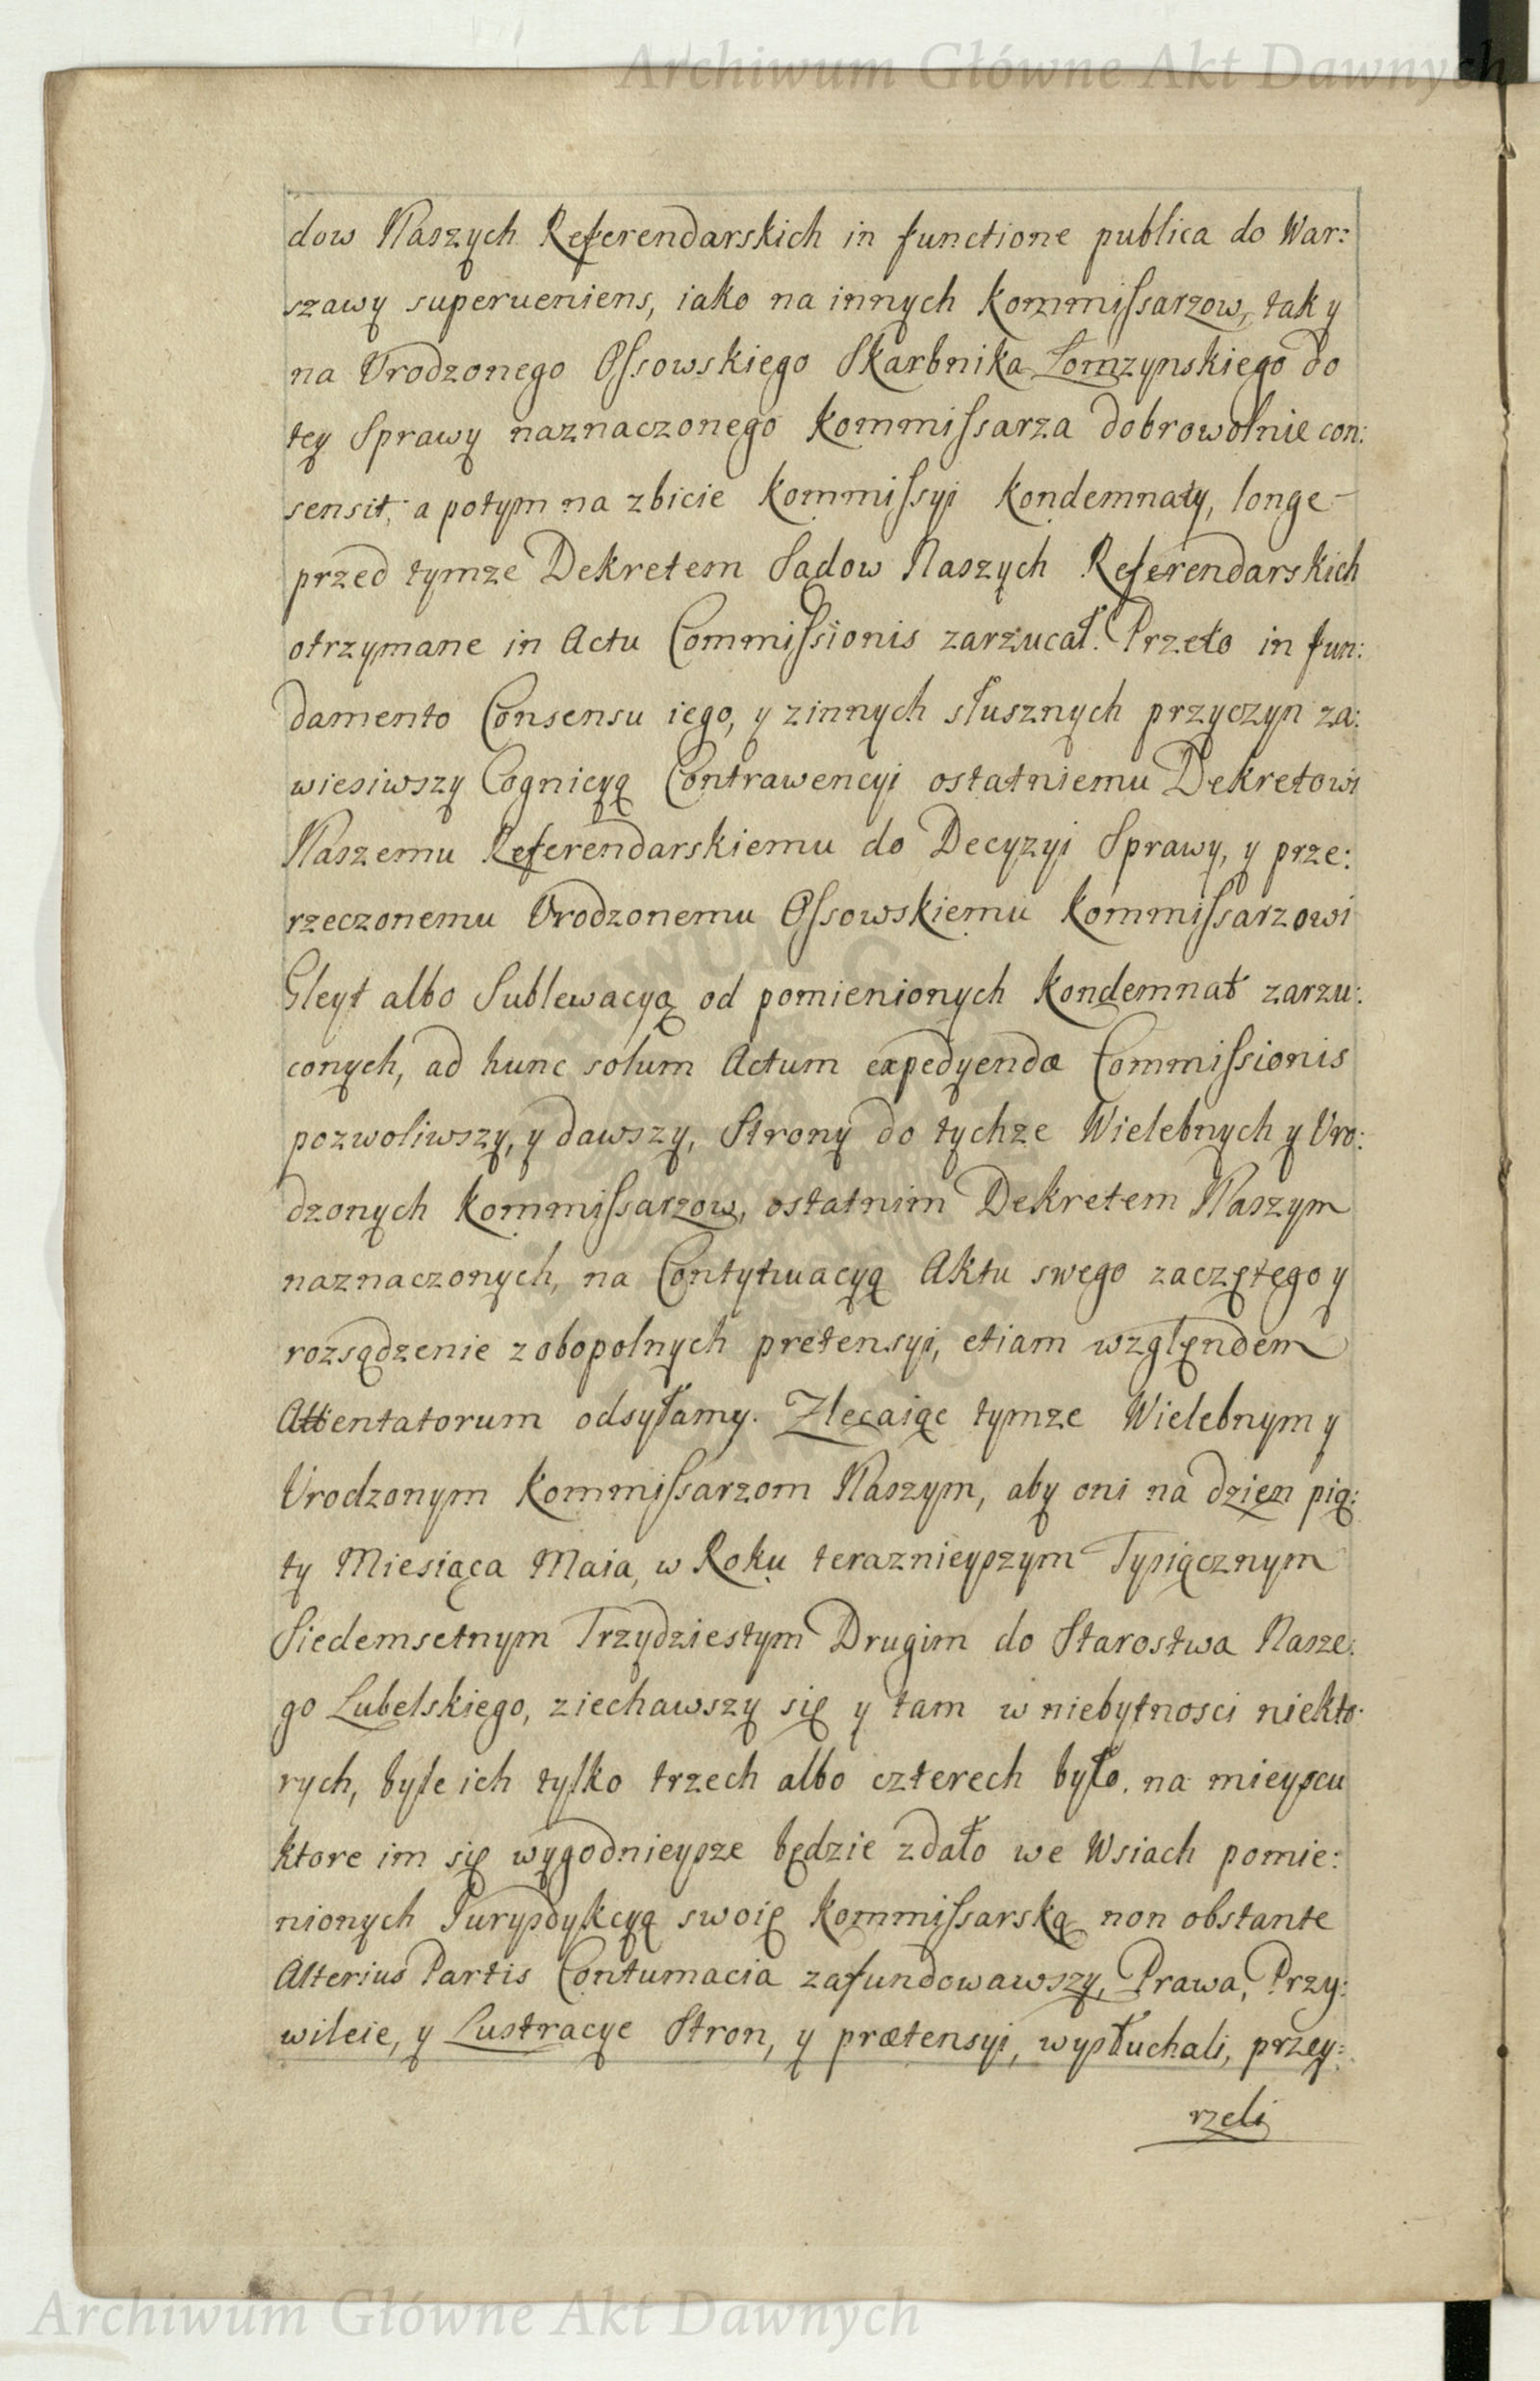 Archiwum Główne Akt Dawnych
dow Naszych Referendarskich in functione publica do War:
szawy superueniens, iako na innych Kommissarzow, tak y
na Urodzonego Ossowskiego Skarbnika Łomzynskiego do
tey Sprawy naznaczonego Kommissarza dobrowolnie con:
sensit, a potym na zbicie Kommissyi Kondemnaty, longe
przed tymze Dekretem Sądow Naszych Referendarskich
otrzymane in Actu Commissionis zarzucał. Przeto in fun:
damento Consensu iego, y zinnych słusznych przyczyn za:
wiesiwszy Cognicyą Contrawencyi ostatniemu Dekretowi
Naszemu Referendarskiemu do Decyzyi Sprawy, y prze:
rzeczonemu Urodzonemu Ossowskiemu Kommissarzowi
Gleyt albo Sublewacyą od pomienionych Kondemnat zarzu:
conych, ad hunc solum Actum expedyendæ Commissionis
pozwoliwszy, y dawszy, Strony do tychze Wielebnych y Uro:
dzonych Kommissarzow, ostatnim Dekretem Naszym
naznaczonych, na Contytuacyą Aktu swego zaczętego y
rozsądzenie zobopolnych pretensyi, etiam względem
Attentatorum odsyłamy. Zlecaiąc tymze Wielebnym y
Urodzonym Kommissarzom Naszym, aby oni na dzien pią:
ty Miesiąca Maia, w Roku teraznieyszym Tysiącznym
Siedemsetnym Trzydziestym Drugim do Starostwa Nasze:
go Lubelskiego, ziechawszy się y tam w niebytnosci niekto:
rych, byle ich tylko trzech albo czterech było, na mieyscu
ktore im się wygodnieysze będzie zdało we Wsiach pomie:
nionych Jurysdykcyą swoię Kommissarską non obstante
Alterius Partis Contumacia zafundowawszy, Prawa, Przy:
wileie, y Lustracye Stron, y prætensyi, wysłuchali, przey:
rzeli
Archiwum Główne Akt Dawnych